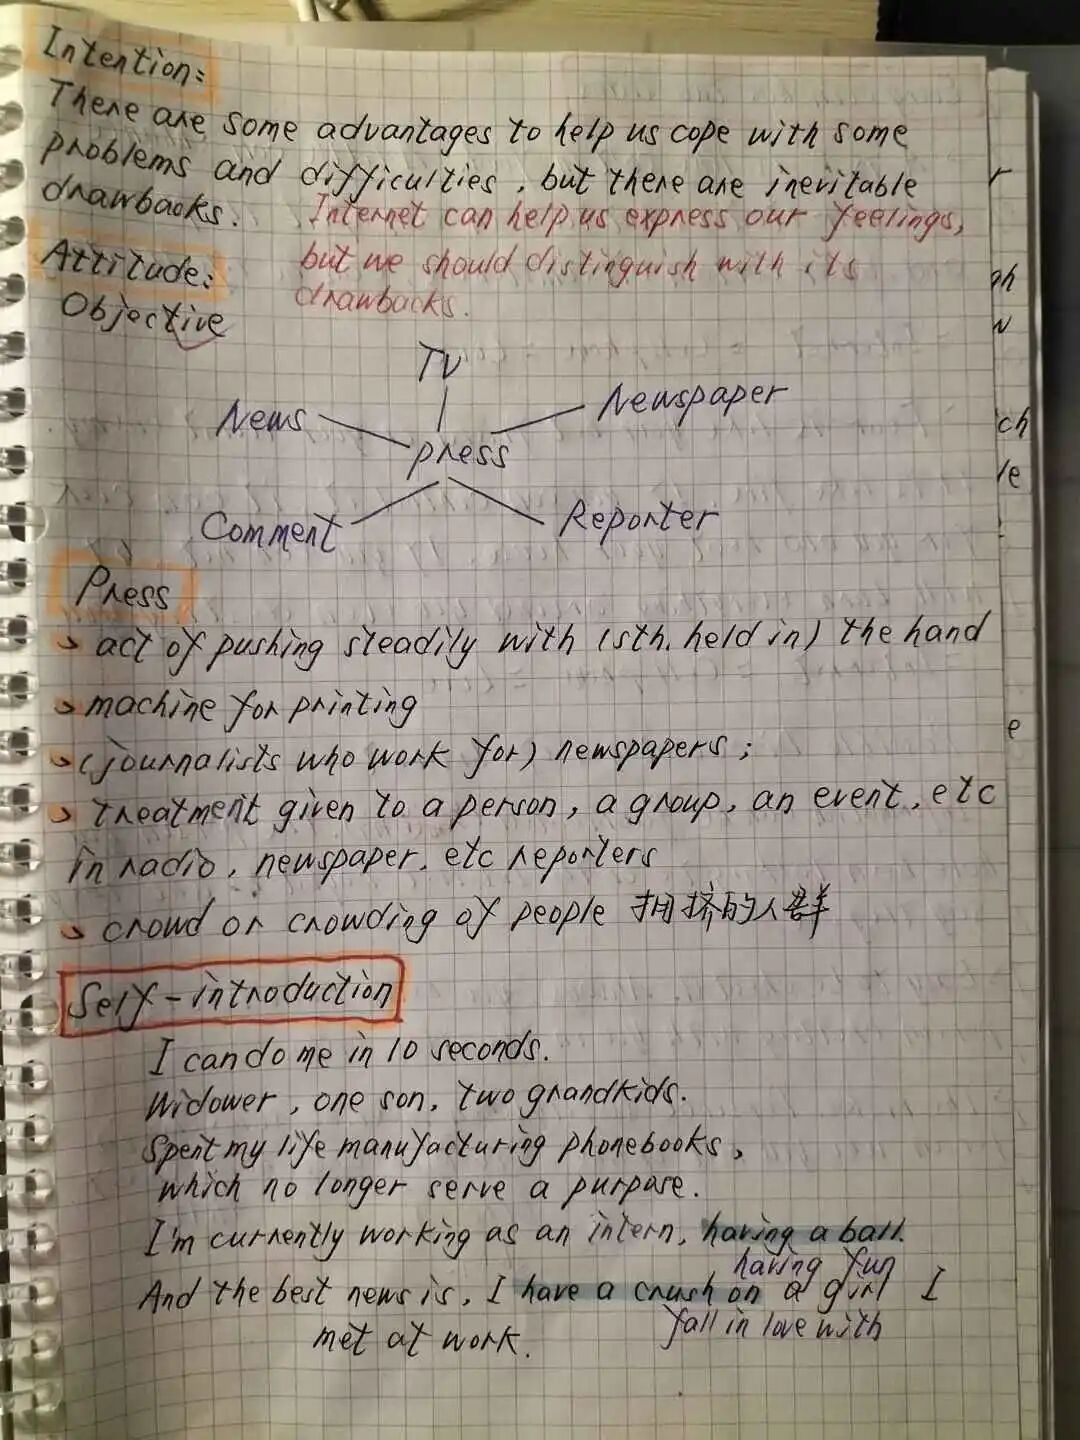 Intention:
There are some advantages to help us cope with some
problems and difficulties, but there are inevitable
drawbacks. Internet can help us express our feelings,
but we should distinguish with its
drawbacks.
Attitude:
Objective
TV
News
Newspaper
press
Comment
Reporter
Press
act of pushing steadily with (sth. held in) the hand
machine for printing
(journalists who work for) newspapers;
treatment given to a person, a group, an event, etc
in radio, newspaper, etc reporters
crowd or crowding of people 拥挤的人群
Self-introduction
I can do me in 10 seconds.
Widower, one son, two grandkids.
Spent my life manufacturing phonebooks,
which no longer serve a purpose.
I'm currently working as an intern, having a ball.
having fun
And the best news is, I have a crush on a girl I
fall in love with
met at work.
r
gh
w
ch
le
e